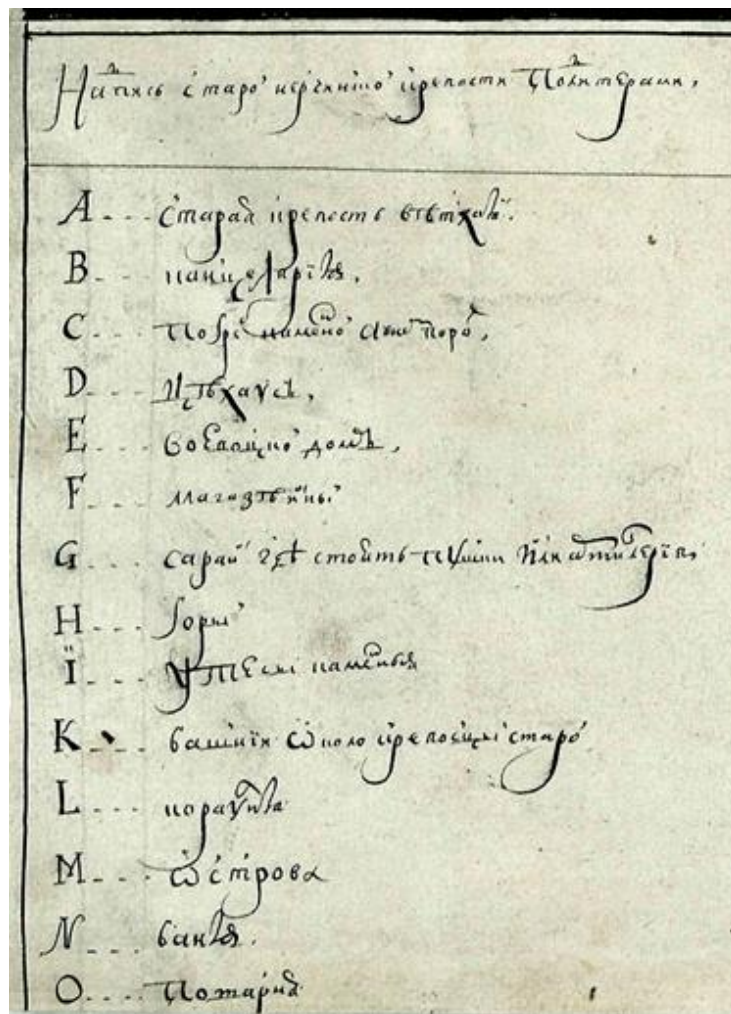 Надпись старой нерчинской крепости по литерами,
A - - - старая крепость ветхая.
B - - - канцелярия,
C - - - погреб каменной
D - - - цехаусъ,
E - - - воеводцкой домъ,
F - - - магазейны
G - - - сарай где стоять пушки или артилерия,
H - - - горы
Ï - - - утесы каменыя
K - - - башни около крепости старой
L - - - караулня
M - - - острова
N - - - баня.
O - - - поварня